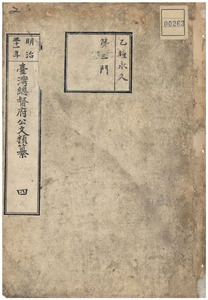 乙種永久
第三門
00263
明治
臺灣總督府公文類纂
四